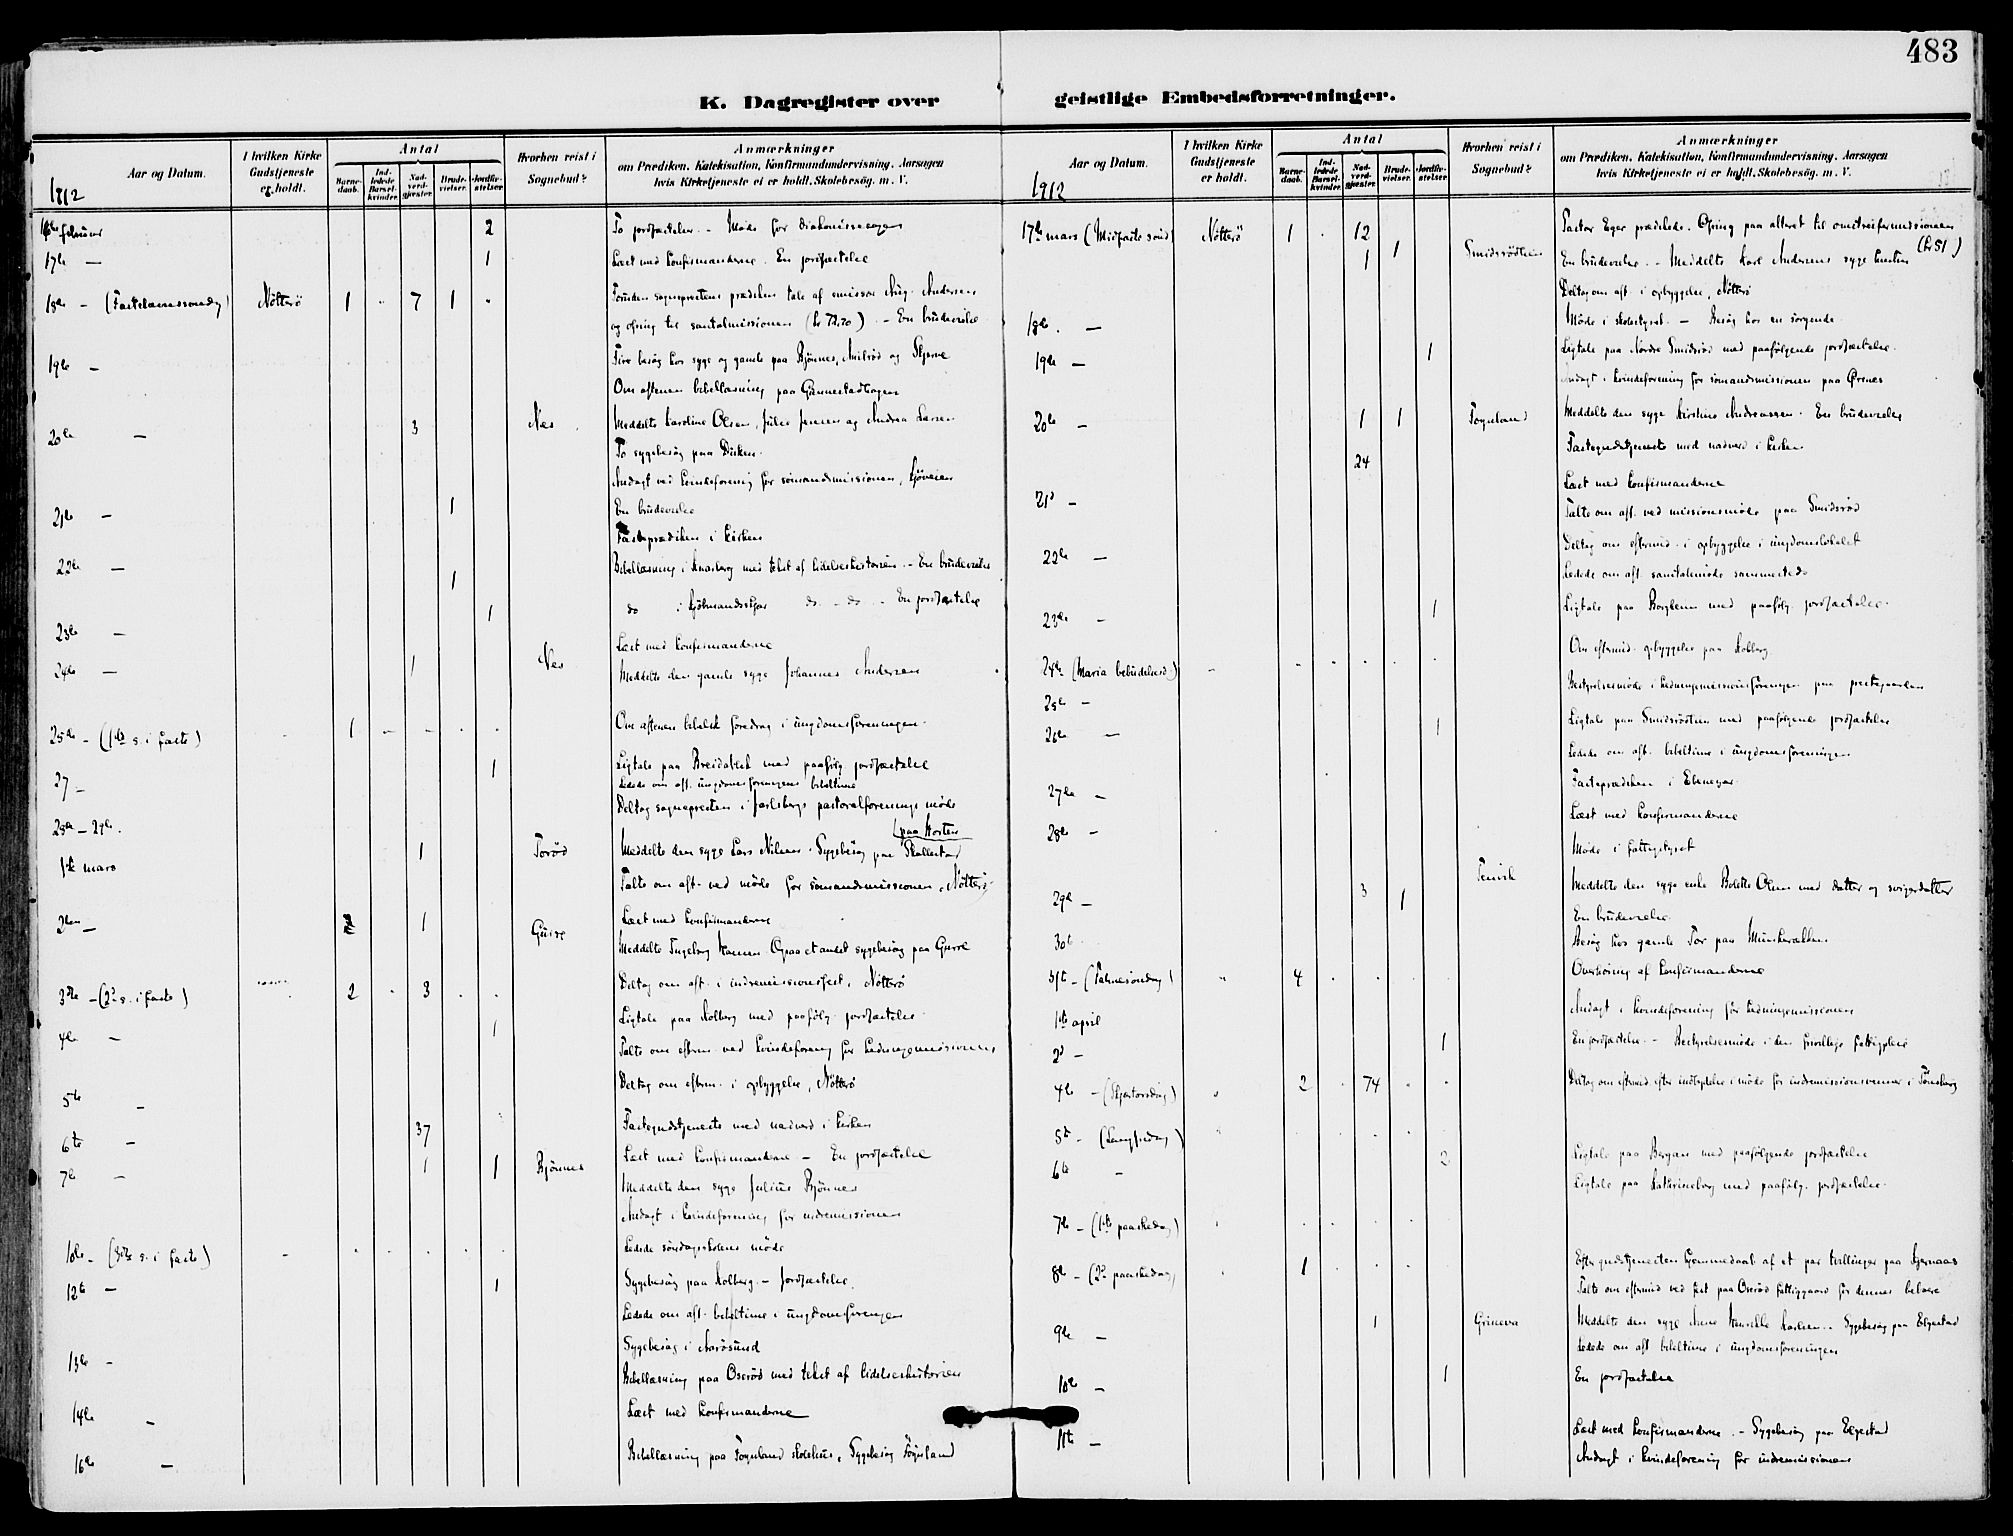 483
K. Dagregister over geistlige Embedsforretninger.
Aar og Datum.
I hvilken Kirke Gudstjeneste er holdt.
Antal
Barnedaab.
Indledede Barselkvinder.
Nadverdgjæster.
Brudevielser.
Jordfæstelser.
Hvorhen reist i Sognebud?
Anmærkninger
om Prædiken, Katekisation, Konfirmandundervisning, Aarsagen
hvis Kirketjeneste ei er holdt, Skolebesøg, m. V.
1912
16de februar 2 To jordfæstelser. - Møde for diakonissesagen
17de — 1 Læst med konfirmanderne. En jordfæstelse
18de - (Fastelavnssondag) Nötterö 1 . 7 1 . Foruden sognepræstens prædiken tale af Aug. Andersen
og ofring til santalmissionen (kr 72,70) - En brudevielse
19de - Fire besøg hos syge og gamle paa Bjönnes, og Skjerve
Om aftenen bibellæsning paa Gunnestadhagen
20de - 3 Næs Meddelte Karoline Olsen, Julie Jensen og Andrea Larsen
To sygebesøg paa
Andagt ved kvindeforening for sømandsmissionen,
21de - 1 En brudevielse
Fasteprædiken i kirken
22de - 1 Bibellæsning i med tekst af lidelseshistorien. - En brudevielse
1 do i do - do - En jordfæstelse
23de - Læst med konfirmanderne
24de - 1 Næs Meddelte den gamle syge Johannes Andersen
25de - (1ste s. i faste) 1 Om aftenen bibelsk foredrag i ungdomsforeningen.
27 - 1 Ligtale paa Breidablik med paafølg. jordfæstelse
Ledede om aft. ungdomsforeningens bibeltime
28de - 29de. Deltog sognepresten i Jarlsbergs pastoralforenings møde
(paa Horten
1ste mars 1 Torød Meddelte den syge Lars Nilsen. Sygebesøg paa Skallestad
Talte om aft. ved møde for sømandsmissionen, Nötterö
2den - 1 Læst med konfirmanderne
Meddelte Ingeborg Hansen. Ogsaa et andet sygebesøg paa
3die - (2den s. i faste) 2 . 3 . . Deltog om aft. i indremissionsfest, Nötterö
4de - 1 Ligtale paa Kolberg med paafølg. jordfæstelse.
Talte om efterm. ved kvindeforening for hedningemissionen
5te - Deltog om efterm. i opbyggelse, Nötterö
6te - 37 Fastegudstjeneste med nadverd i kirken
7de - 1 1 Bjönnes Læst med konfirmanderne - En jordfæstelse
Meddelte den syge Julius Bjönnes
Andagt i kvindeforening for indremissionen
10de - (3die s. i faste) Ledede søndagsskolens møde
12te - 1 Sygebesøg paa Kolberg. - Jordfæstelse.
Ledede om aft. bibeltime i ungdomsforeningen
13de - Sygebesøg i Aarøsund
Bibellæsning paa Oserød med tekst af lidelseshistorien
14de - Læst med konfirmanderne
16de - Bibellæsning paa Föynland skolehus, Sygebesøg Föynland
Aar og Datum.
I hvilken Kirke Gudstjeneste er holdt.
Antal
Barnedaab.
Indledede Barselkvinder.
Nadverdgjæster.
Brudevielser.
Jordfæstelser.
Hvorhen reist i Sognebud?
Anmærkninger
om Prædiken, Katekisation, Konfirmandundervisning, Aarsagen
hvis Kirketjeneste ei er holdt, Skolebesøg, m. V.
1912
17de mars (Midfaste sönd) Nötterö 1 . 12 Pastor Eger prædikede. Ofring paa alteret til omstreifermissionen
(kr 51)
1 1 Smidsrödtien En brudevielse. - Meddelte Karl Andersens syge hustru
Deltog om aft. i opbyggelse, Nötterö
18de. - Møde i skolestyret. - Besøg hos en sørgende.
19de - 1 Ligtale paa Nordre Smidsrød med paafølgende jordfæstelse.
Andagt i kvindeforening for sømandsmissionen paa Ørsnes
20de - 1 1 Föynland Meddelte den syge Kirstine Andreassen. En brudevielse
24 Fastegudstjeneste med nadverd i kirken
21de - Læst med konfirmanderne
Talte om aft. ved missionsmøde paa Smidsrød
22de - Deltog om eftermid. i opbyggelse i ungdomslokalet
Ledede om aft. samtalemøde sammesteds
23de - 1 Ligtale paa Borgheim med paafølg. jordfæstelse.
24de (Maria bebudelsesd) Om eftermid. opbyggelse paa Kolberg.
25de - Bestyrelsesmøde i hedningemissionsforeningen paa prestegaarden
26de - 1 Ligtale paa Smidsrödtien med paafølgende jordfæstelse
Ledede om aft. bibeltime i ungdomsforeningen
27de - Fasteprædiken i Ebenezer.
28de - Læst med konfirmanderne
Møde i fattigstyret
29de - 3 1 Tenvik Meddelte den syge enke Bolette Olsen med datter og svigerdatter
En brudevielse
30te Besøg hos gamle Tor paa Munkerækken
31te - (Palmesøndag) 4 Overhøring af konfirmanderne
1ste april Andagt i kvindeforening for hedningemissionen
2den - 1 En jordfæstelse. - Bestyrelsesmøde i den frivillige fattigpleie
4de - (Skjærtorsdag) 2 . 74 . . Deltog om eftermid. efter indbydelse i møde for indremissionsvenner i Tönsberg
5te - (Langfredag)
6te - 2 Ligtale paa Bergan med paafølgende jordfæstelse
Ligtale paa Kathrineborg med paafølg. jordfæstelse.
7de - (1ste paaskedag)
8de - (2den paaskedag) 1 Efter gudstjenesten hjemmedaab af et par tvillinger paa
Talte om eftermid ved fest paa Oserød fattiggaard for dennes beboere
9de - 1 Grineva Meddelte den syge Anne Karlsen. - Sygebesøg paa Elgestad
Ledede om aft bibeltime i ungdomsforeningen
10de - 1 En jordfæstelse
11te - Læst med konfirmanderne. - Sygebesøg paa Elgestad
Andagt i kvindeforening for indremissionen